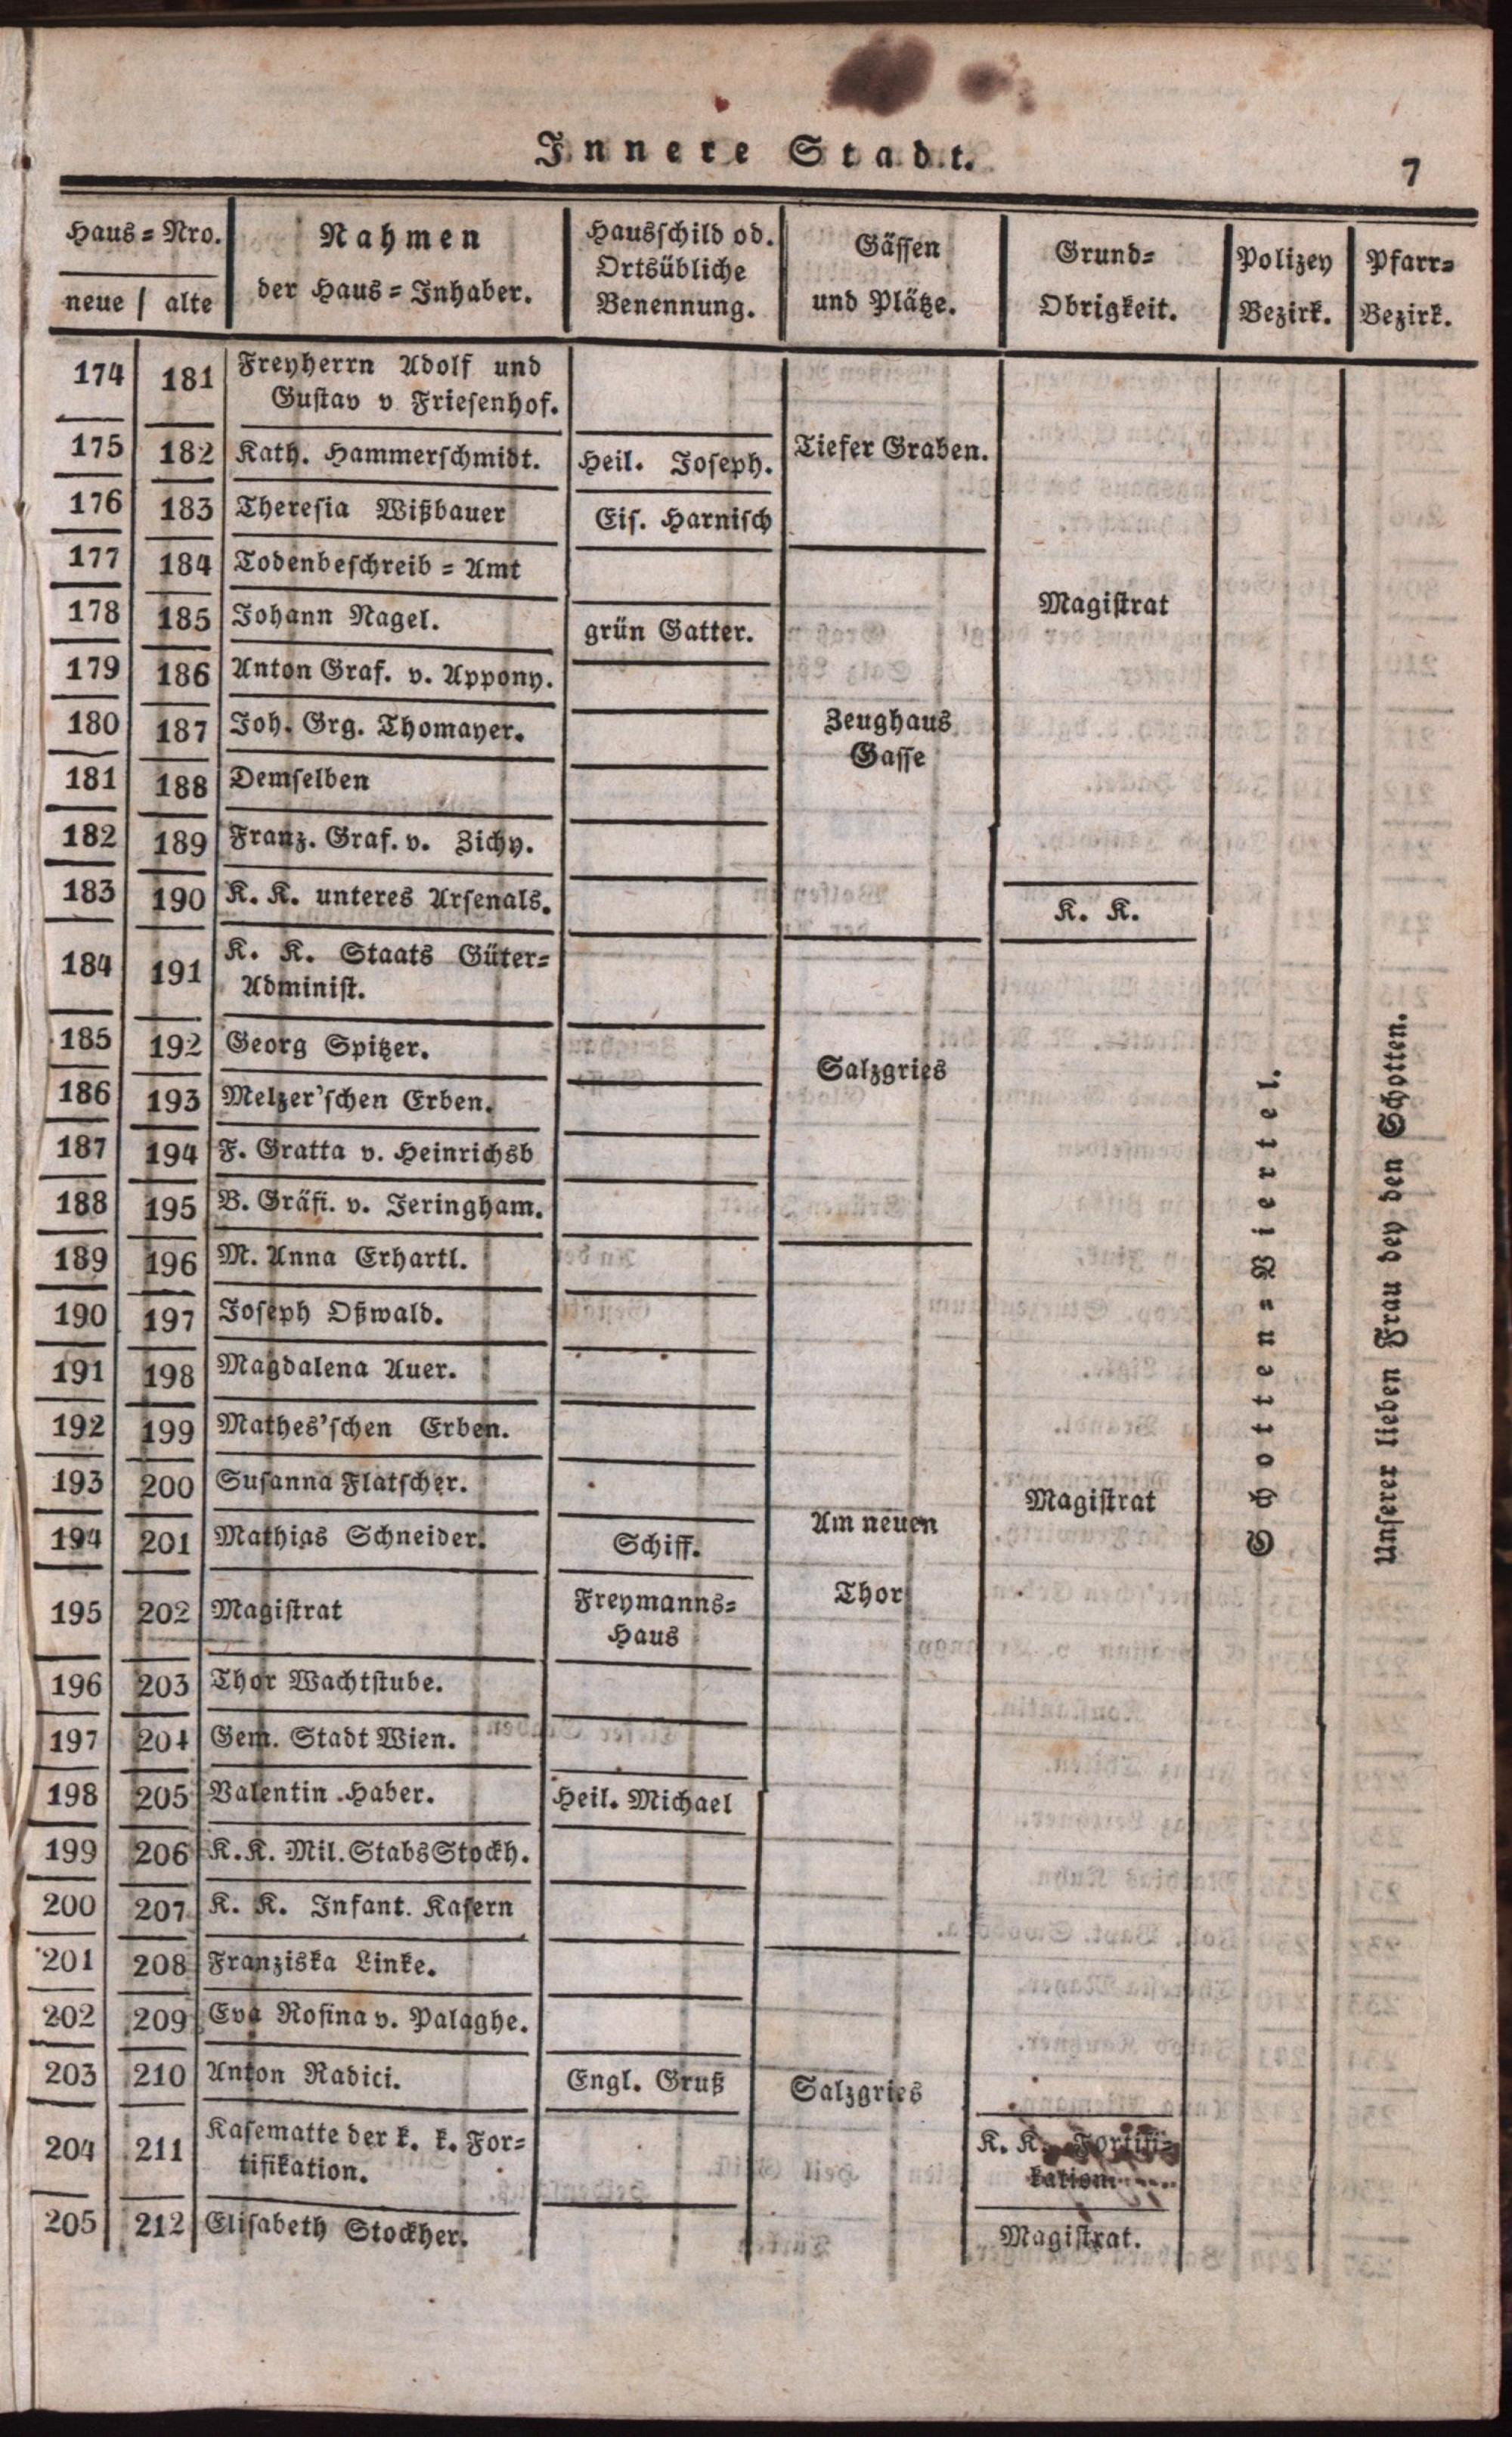 Innere Stadt.
7
Haus=Nro. Nahmen Hausschild od. Gässen Grund= Polizey Pfarr=
neue alte der Haus=Inhaber. Ortsübliche und Plätze. Obrigkeit. Bezirk. Bezirk.
Benennung.
174 181 Freyherrn Adolf und
Gustav v Friesenhof.
175 182 Kath. Hammerschmidt. Heil. Joseph. Tiefer Graben.
176 183 Theresia Wißbauer Eis. Harnisch
177 184 Todenbeschreib=Amt
178 185 Johann Nagel. grün Gatter. Magistrat
179 186 Anton Graf. v. Appony.
180 187 Joh. Grg. Thomayer. Zeughaus
Gasse
181 188 Demselben
182 189 Franz. Graf. v. Zichy.
183 190 K. K. unteres Arsenals. K. K.
184 191 K. K. Staats Güter=
Administ.
185 192 Georg Spitzer. Salzgries
186 193 Melzer'schen Erben.
187 194 F. Gratta v. Heinrichsb
188 195 B. Gräfi. v. Jeringham.
189 196 M. Anna Erhartl.
190 197 Joseph Oßwald.
191 198 Magdalena Auer.
192 199 Mathes'schen Erben.
193 200 Susanna Flatscher. Magistrat
194 201 Mathias Schneider. Schiff. Am neuen
195 202 Magistrat Freymanns= Thor
Haus
196 203 Thor Wachtstube.
197 204 Gem. Stadt Wien.
198 205 Valentin Haber. Heil. Michael
199 206 K. K. Mil. Stabs Stockh.
200 207 K. K. Infant. Kasern
201 208 Franziska Linke.
202 209 Eva Rosina v. Palaghe.
203 210 Anton Radici. Engl. Gruß Salzgries
204 211 Kasematte der k. k. For= K. K. Fortifi=
tifikation. kation
205 212 Elisabeth Stockher. Magistrat.
Schotten=Viertel.
Unserer lieben Frau bey den Schotten.